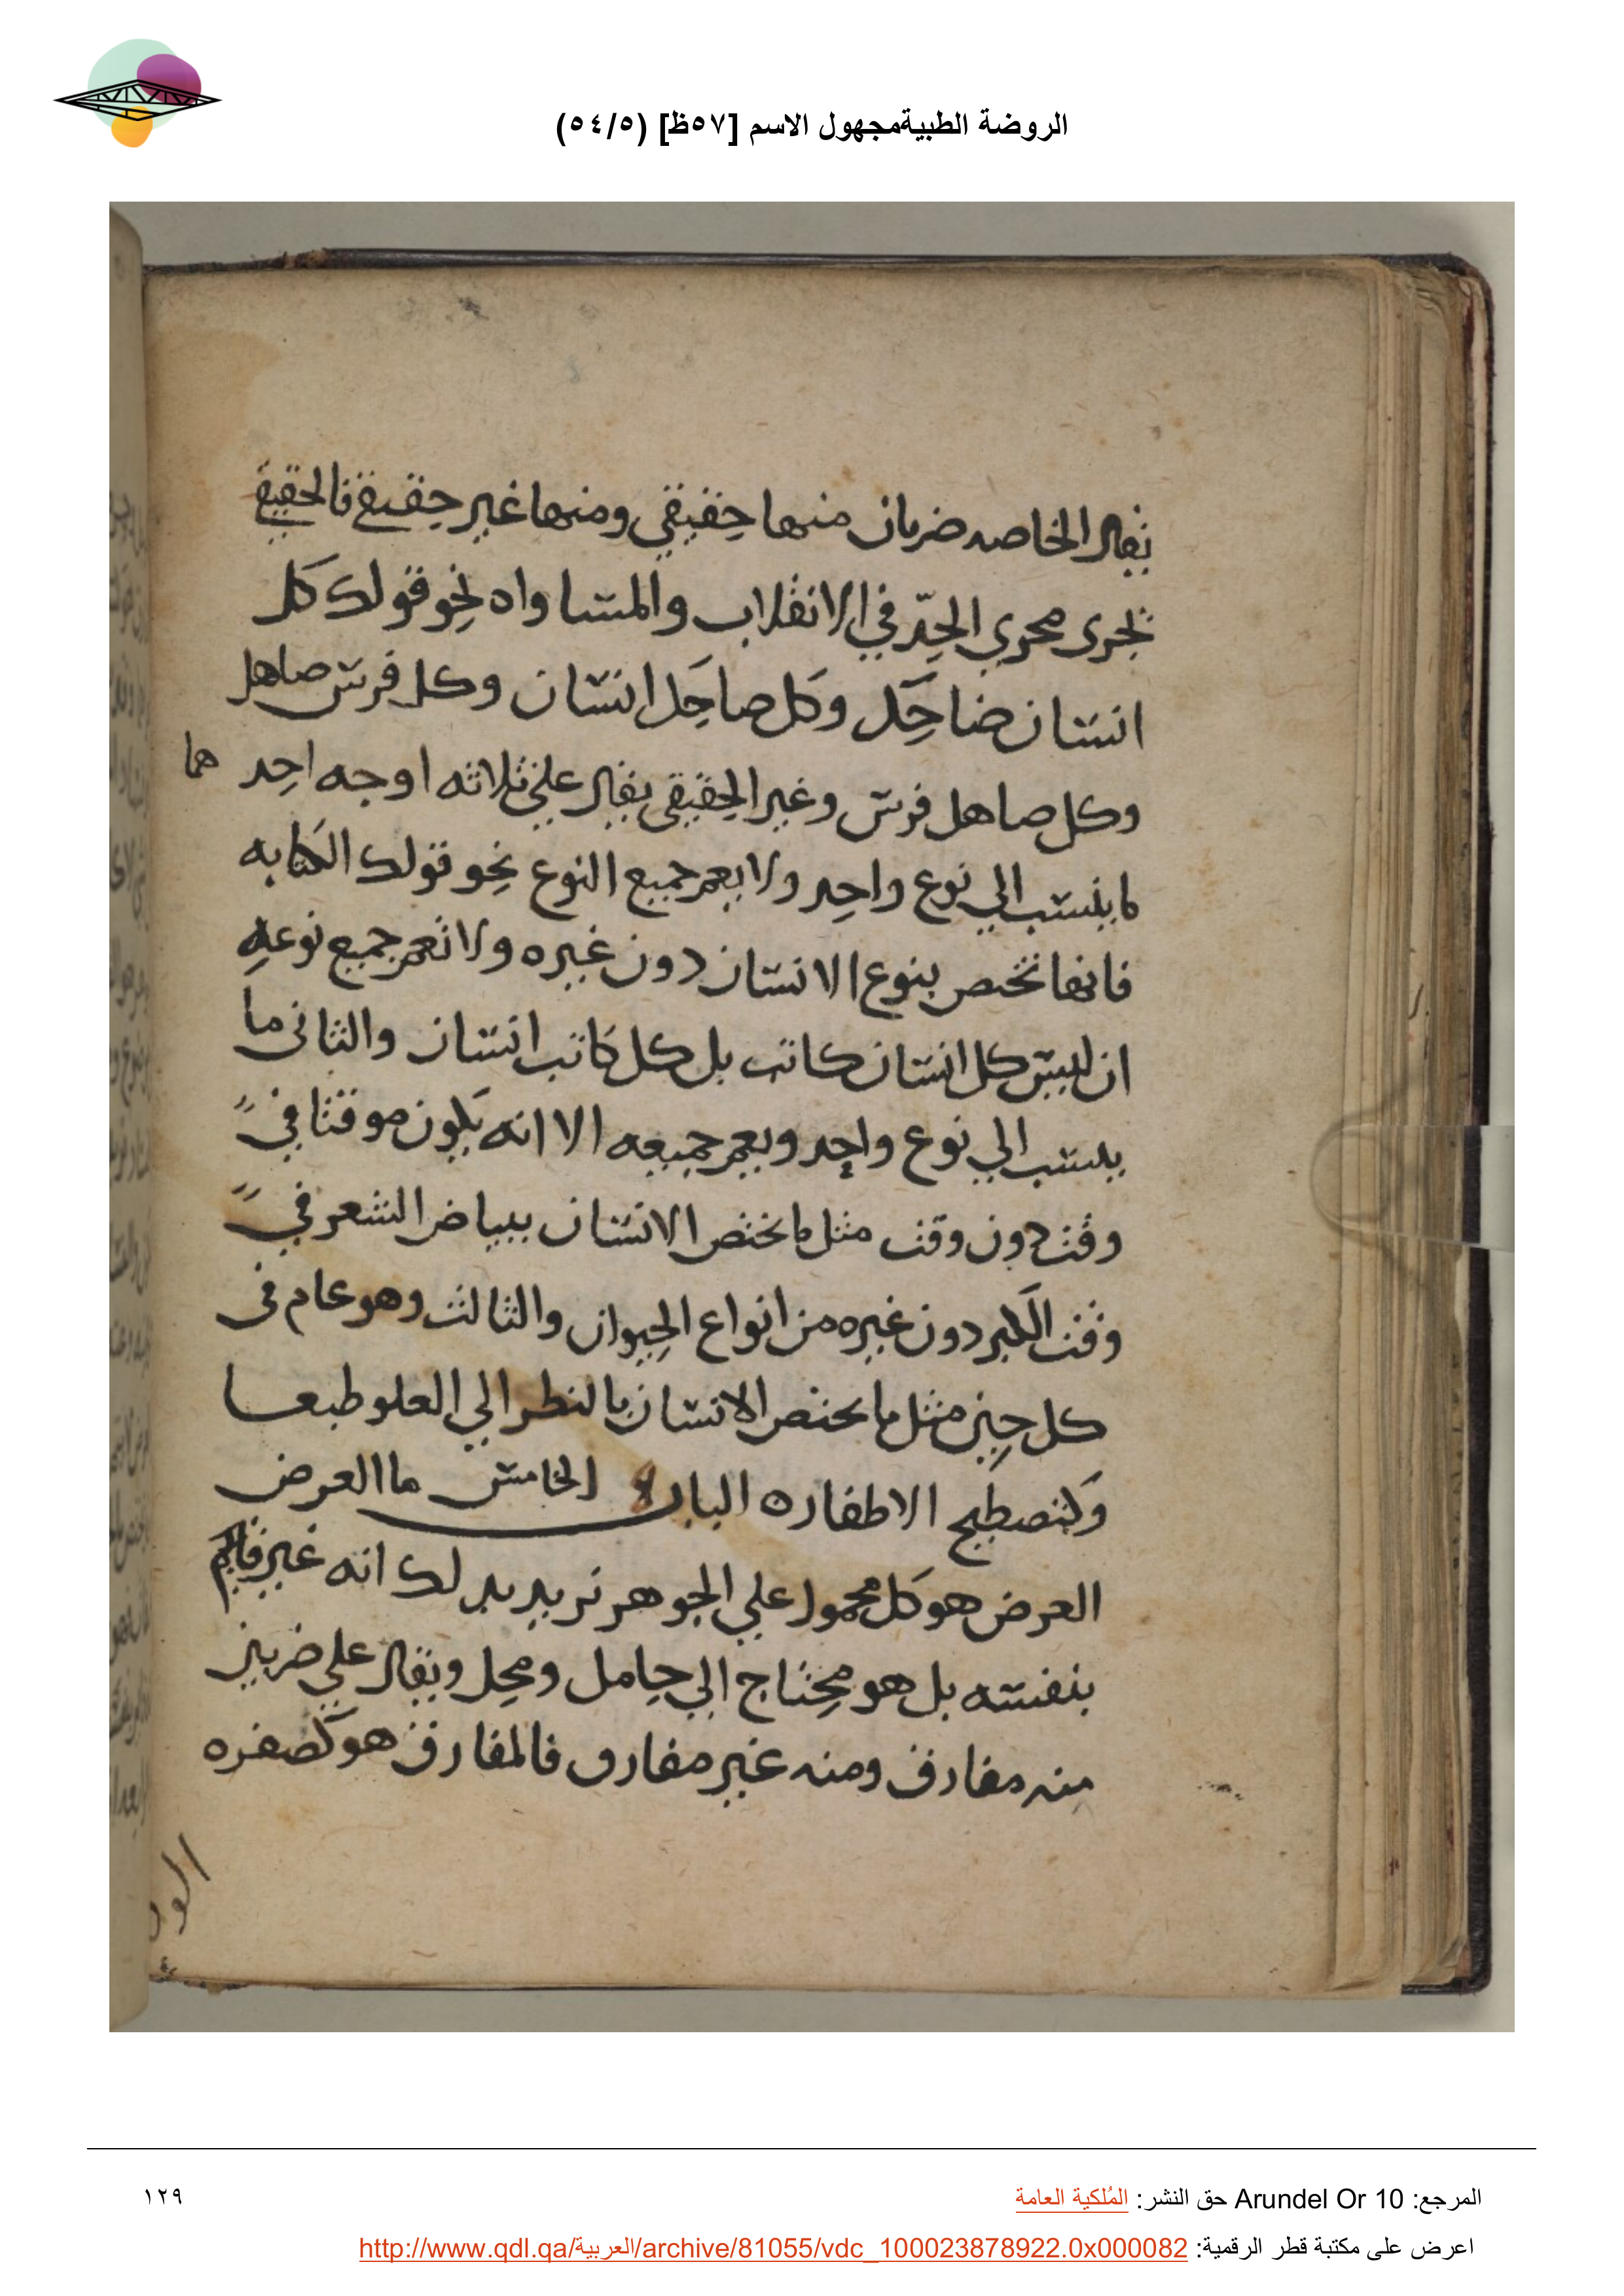 الروضة الطبيةمجهول الاسم [٥٧ظ] (٥٤/٥)
يقال الخاصه ضربان منها حقيقي ومنها غير حقيقي فالحقيقي
تجرى مجري الحدّ في الانقلاب والمساواه نحو قولك كل
انسان ضاحك وكل ضاحك انسان وكل فرس صاهل
وكل صاهل فرس وغير الحقيقي يقال علي ثلاثه اوجه احدهما
ما ينسب الي نوع واحد ولا يعم جميع النوع نحو قولك الكتابه
فانها تختص بنوع الانسان دون غيره ولا تعم جميع نوعه
ان ليس كل انسان كاتب بل كل كاتب انسان والثانى ما
ينسب الي نوع واحد ويعم جميعه الا انه يكون موقتا في
وقت دون وقت مثل ما يختص الانسان ببياض الشعر في
وقت الكبر دون غيره من انواع الحيوان والثالث وهو عام فى
كل حين مثل ما يختص الانسان بالنظر الي العلو طبعا
الاطفاره الباب الخامس ما العرض
العرض هو كل محمول علي الجوهر نريد لك انه غير قايم
بنفسه بل هو محتاج الي حامل ومحل ويقال علي ضربين
منه مفارق ومنه غير مفارق فالمفارق هو كصفره
المرجع: Arundel Or 10 حق النشر: المُلكية العامة
١٢٩
اعرض على مكتبة قطر الرقمية: http://www.qdl.qa/العربية/archive/81055/vdc_100023878922.0x000082